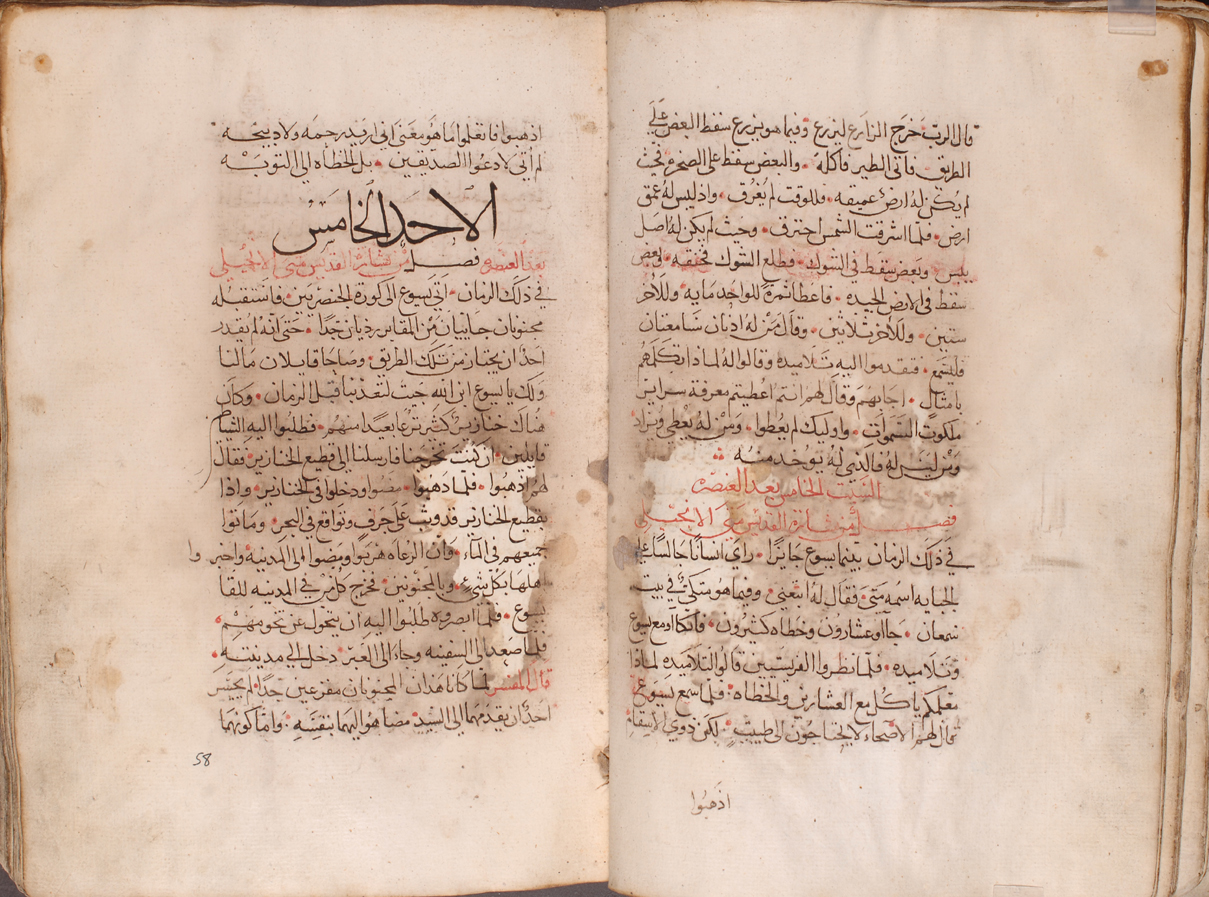 قال الرب خرج الزارع ليزرع وفيما هو يزرع سقط البعض علي
الطريق فاتى الطير فاكله والبعض سقط على الصخره بحيث
لم يكن له ارض عميقه فللوقت لم يغرق واذ ليس له عمق
ارض فلما اشرقت الشمس احترق وحيث لم يكن له اصل
يبس وبعض سقط في الشوك فطلع الشوك فخنقه وبعض
سقط في الارض الجيده فاعطا ثمرة للواحد مايه وللاخر
ستين وللاخر ثلاثين وقال من له ادنان سامعتان
فليسمع فتقدموا اليه تلاميده وقالوا له لماذا تكلمهم
بامثال اجابهم وقال لهم انتم اعطيتم معرفة سراير
ملكوت السموات واوليك لم يعطوا ومن له يعطي ويزاد
ومن ليس له فالذي له يوخد منه
السبت الخامس بعد العنصره
فصل من بشارة القديس متى الانجيلي
في ذلك الزمان بينما يسوع جايزا راى انسانا جالسا على
الجبايه اسمه متى فقال له اتبعني وفيما هو متكي في بيت
سمعان جااو عشارون وخطاه كثيرون فاتكااو مع يسوع
وتلاميده فلما نظروا الفريسيين قالوا لتلاميده لماذا
معلمكم ياكل مع العشارين والخطاه فلما سمع يسوع
قال لهم الاصحاء لا يحتاجون الى طبيب لكن ذوي الاسقام
اذهبوا
اذهبوا فاتعلموا ما هو معنى اني اريد رحمه ولا دبيحه
لم اتي لادعوا الصديقين بل الخطاه الى التوبه
الاحد الخامس
بعد العنصره فصل من بشارة القديس متى الانجيلي
في ذلك الزمان اتى يسوع الى كورة الجرجسيين فاستقبله
مجنونان جاييان من المقابر رديان جدا حتى انه لم يقدر
احد ان يجتاز من تلك الطريق وصاحا قايلان مالنا
ولك يا يسوع ابن الله جيت لتعذبنا قبل الزمان وكان
هناك خنازير كثير ترعا بعيدا منهم فطلبوا اليه الشياطين
قايلين ان كنت تخرجنا فارسلنا الى قطيع الخنازير فقال
لهم اذهبوا فلما ذهبوا مضوا ودخلوا في الخنازير واذا
بقطيع الخنازير قد وثب على جرف وتواقع في البحر وماتوا
جميعهم في الماء وان الرعاه هربوا ومضوا الى المدينه واخبروا
اهلها بكل شي وبالمجنونين فخرج كل من في المدينه للقا
يسوع فلما ابصروه طلبوا اليه ان يتحول عن تخومهم
فلما صعد الى السفينه وجاء الى العبر دخل الى مدينته
قال المفسر لما كانا هدان المجنونان مفزعين جدا لم يجسر
احد ان يقدمهما الى السيد مضا هو اليهما بنفسه واما كونهما
58